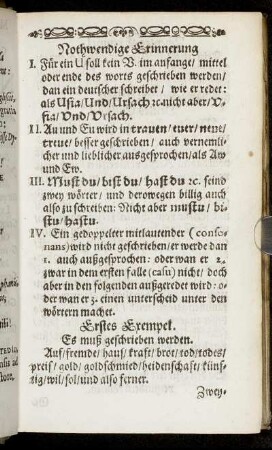 Nothwendige Erinnerung
I. Für ein U soll kein V. im anfange/ mittel
oder ende des worts geschrieben werden/
dan ein deutscher schreibet / wie er redet:
als Usta/Und/Ursach ꝛc. nicht aber/V-
sta/Vnd/Vrsach.
II. Au und Eu wird in trauen/euer/neue/
treue/ besser geschrieben/ auch vernemli-
cher und lieblicher ausgesprochen/als Aw
und Ew.
III. Must du/bist du/hast du ꝛc. seind
zwey wörter/ und derowegen billig auch
also zu schreiben: Nicht aber mustu/ bi-
stu/hastu.
IV. Ein gedoppelter mitlautender (conso-
nans) wird nicht geschrieben/er werde dan
1. auch außgesprochen: oder wan er 2.
zwar in dem ersten falle (casu) nicht/ doch
aber in den folgenden außgeredet wird: o-
der wan er 3. einen unterscheid unter den
wörtern macher.
Erstes Exempel.
Es muß geschrieben werden.
Auf/fremde/haus/kraft/brot/tod/todes/
preis/gold/goldschmied/heidenschaft/kün-
zig/wil/sol/und also ferner.
Zwey-